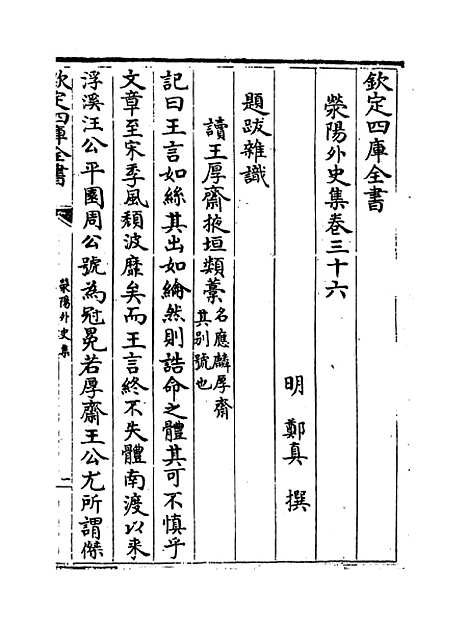 欽定四庫全書
滎陽外史集卷三十六
明 鄭真 撰
題跋雜識
讀王厚齋掖垣類藁名應麟厚齋其别號也
記曰王言如絲其出如綸然則誥命之體其可不慎乎
文章至宋季風頽波靡矣而王言終不失體南渡以来
浮溪汪公平園周公號為冠冕若厚齋王公尤所謂傑
欽定四庫全書
滎陽外史集